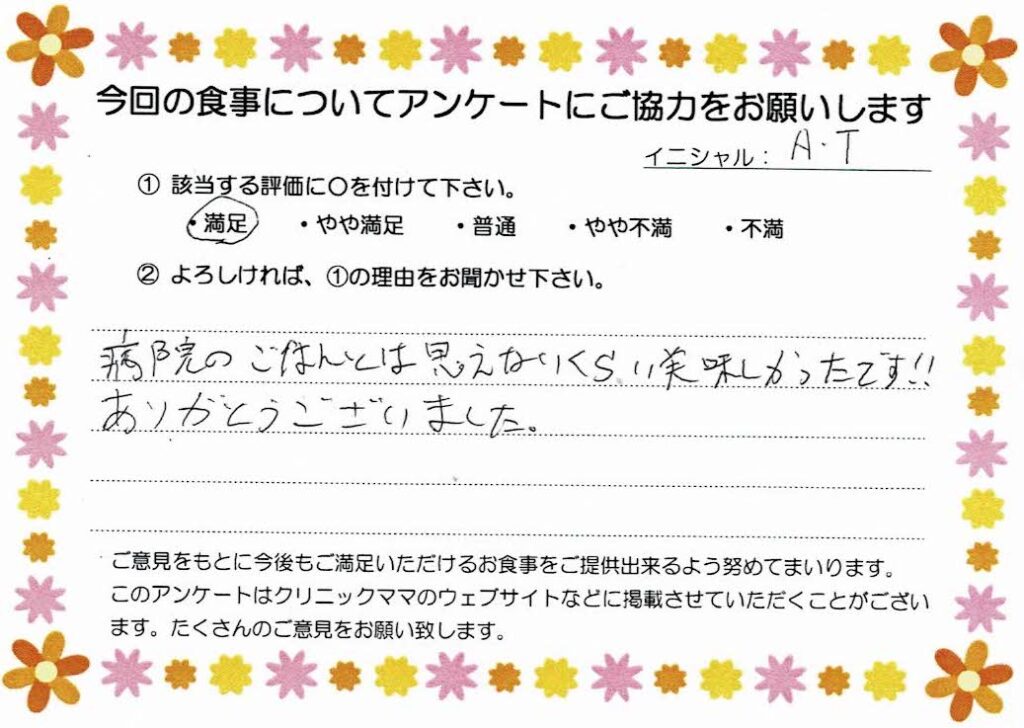 今回の食事についてアンケートにご協力をお願いします
イニシャル： A・T
① 該当する評価に〇を付けて下さい。
・満足 ・やや満足 ・普通 ・やや不満 ・不満
② よろしければ、①の理由をお聞かせ下さい。
病院のごはんとは思えないくらい美味しかったです!!
ありがとうございました。
ご意見をもとに今後もご満足いただけるお食事をご提供出来るよう努めてまいります。
このアンケートはクリニックママのウェブサイトなどに掲載させていただくことがござい
ます。たくさんのご意見をお願い致します。